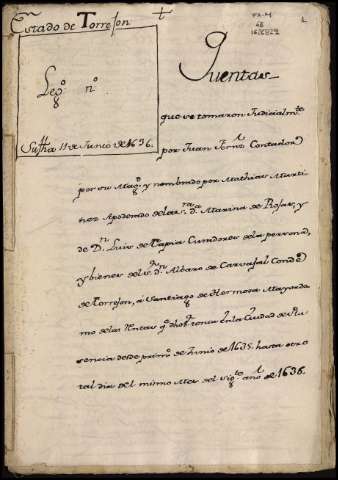 Estado de Torrejon
Leg.º nº
Su fha 11 de Junio de 1636.
Quentas
que se tomaron Judicialmte
por Juan Fernz Contador
por su Magd. y nombrado por Mathias Marti
nez Apoderado de la sra. Da. Marina de Rojas, y
de Dn. Luis de Tapia Curador de la persona,
y bienes del sr. Dn. Albaro de Carvajal Conde
de Torrejon, a Santiago de Hermosa Mayordo
mo de las Rentas q dho sr. tenia en la Ciudad de Pla
sencia desde primro. de Junio de 1635. hasta otro
tal dia del mismo Mes del sigte. año de 1636.